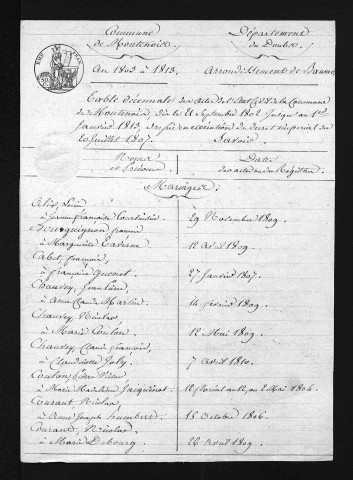 Commune
de Montenois.
Département
du Doubs.
An 1803 à 1813.
Arrondissement de Baume
Table décennale des acte de l'Etat Civil de la Commune
de Montenois, dès le 21 Septembre 1802 jusqu'au 1er
Janvier 1813, dressée en exécution du décret impérial de
20 juillet 1807. Savoir
Noms
et Prénoms
Date
des actes ou du Régistre
Mariages
à Jeanne françoise
29 Novembre 1809.
Bourquignon, françois
à Marguerite Taverne
12 Avril 1809.
Cabet, françois,
à françoise
27 Janvier 1807.
Chauvey,
à Anne Claude Martin
14 février 1809.
Chauvey, Nicolas
à Marie Coulon
12 Mai 1809.
Chauvey, Claude françois,
à Claudinette Joly
7 Avril 1810.
Coulon,
à Marie Madeleine Jacquinot
12 floréal an 12, ou 2 Mai 1804.
Courant Nicolas
à Anne Josephe humbert
15 Octobre 1806.
Courant, Nicolas
à Marie Dubourg
26 Avril 1809.